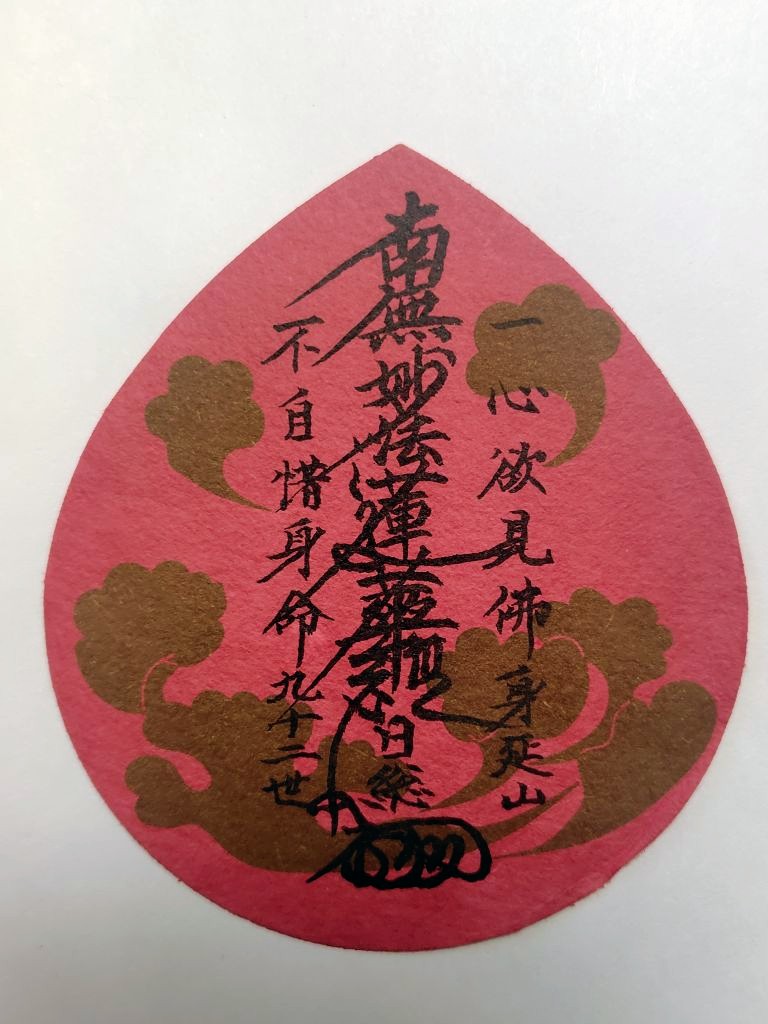 一心欲見佛身延山
南無妙法蓮華経日総
不自惜身命九十二世